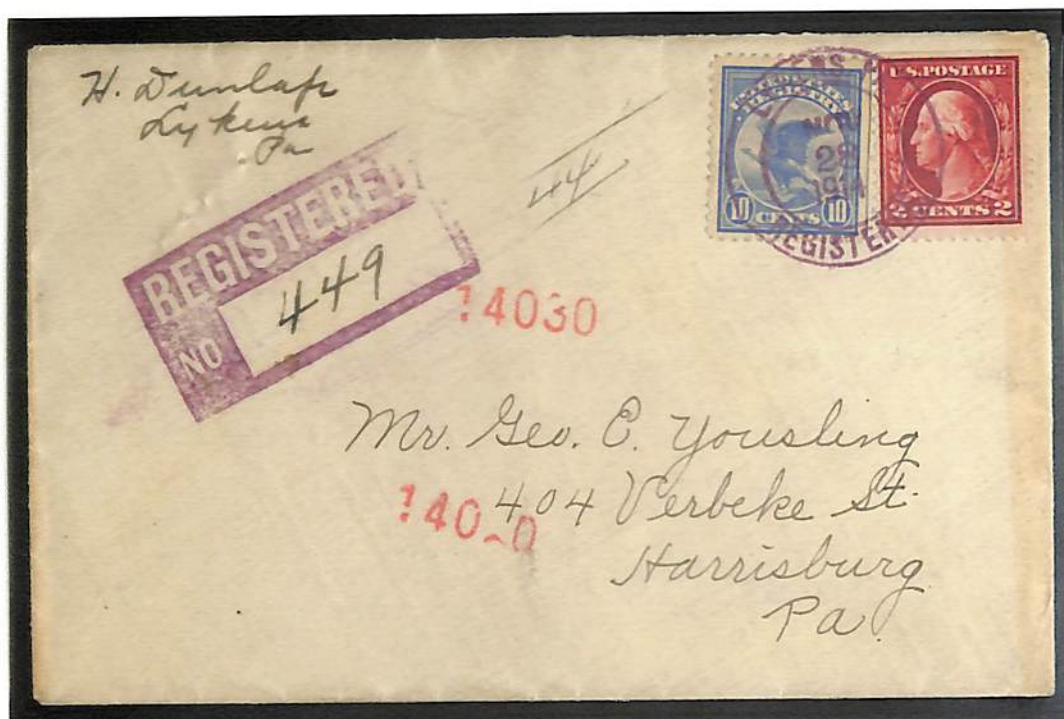 H. Dunlap
Lykens
Pa
REGISTERED
NO 449
44
UNITED STATES
REGISTRY
10 CENTS 10
U.S. POSTAGE
2 CENTS 2
28
REGISTERED
14030
Mr. Geo. C. Yousling
404 Verbeke St.
Harrisburg
Pa.